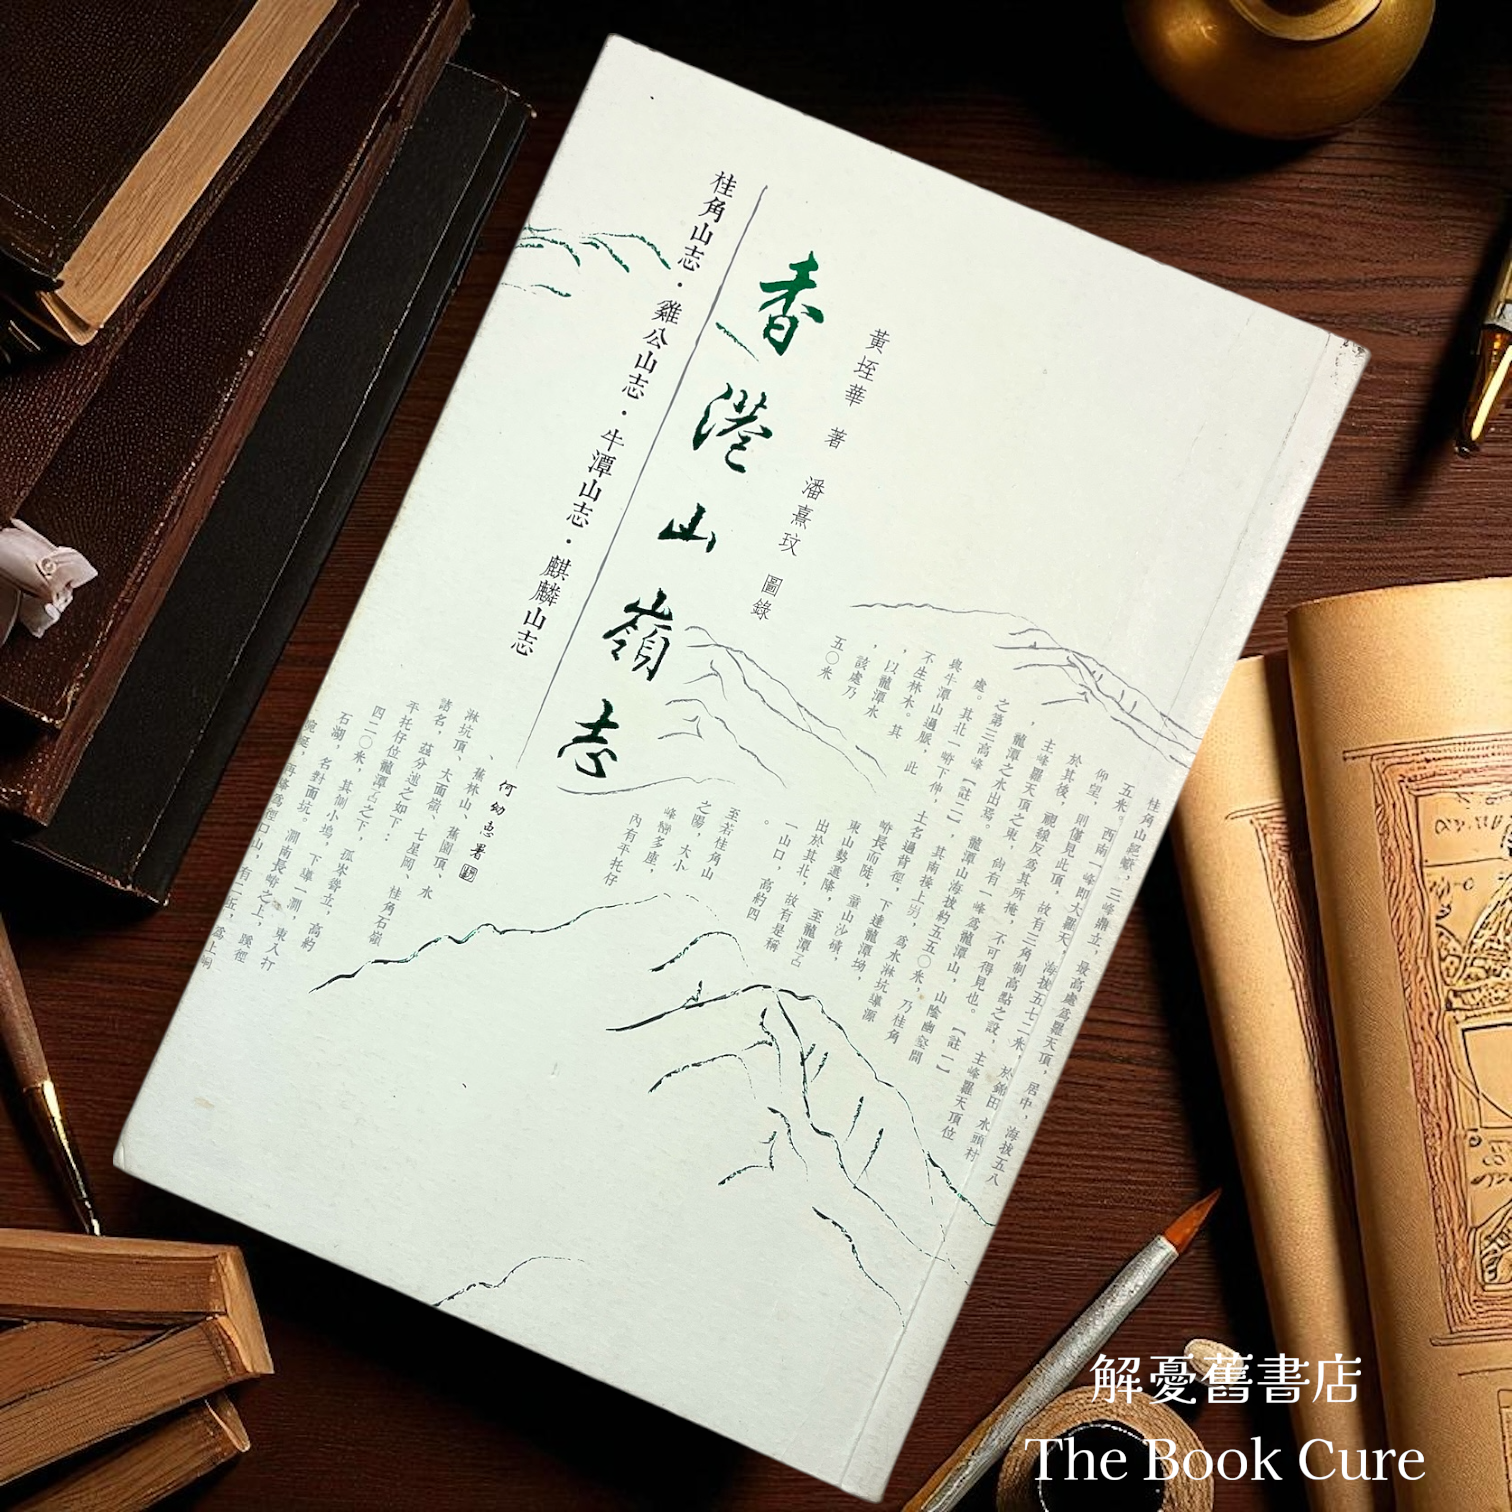 黃垤華 著 潘熹玟 圖錄
香港山嶺志
桂角山志・雞公山志・牛潭山志・麒麟山志
何幼惠署
三峰鼎立，最高處爲羅天頂，居中，海拔五八
五米。西南一峰即大羅天，海拔五七二米，於錦田 水頭村
仰望，則僅見此頂，故有三角制高點之設， 主峰羅天頂位
於其後，視線反爲其所掩，不可得見也。【註一】
主峰羅天頂之東，尚有一峰爲龍潭山，山陰幽壑間
，龍潭之水出焉。龍潭山海拔約五五〇米，乃桂角
之第三高峰【註二】，其南接上坳，爲水淋坑導源
處。其北一嵴下伸，土名過背徑，
與牛潭山過脈，
嵴長而陡，下達龍潭坳，
不生林木。其 此
東山勢遞降，童山沙磧，
，以龍潭水
出於其北，故有是稱
，該處乃
一山口，高約四
五〇米
。
至若桂角山
之陽，大小
峰巒多座，
內有平托仔
、蕉林山、蕉園頂、水
淋坑頂、大面嶺、七星岡、桂角石嶺
諸名，茲分述之如下：
平托仔位龍潭
四二〇米，其
石湖，名對面坑。